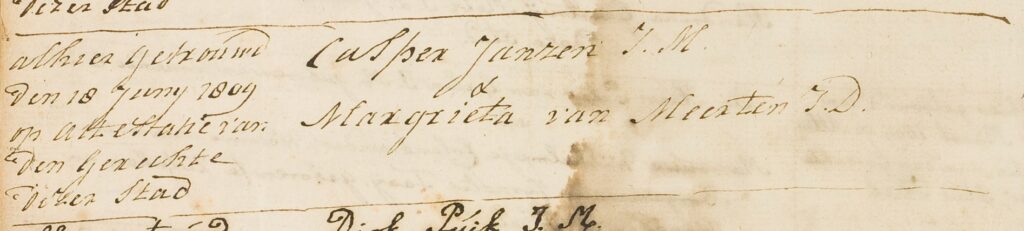 dezer Stad
alhier getrouwd
den 18 Juny 1809
op attestatie van
den Gerechte
dezer Stad
Casper Janzen J. M.
&
Margrieta van Meerten J. D.
Dirk Puik J. M.